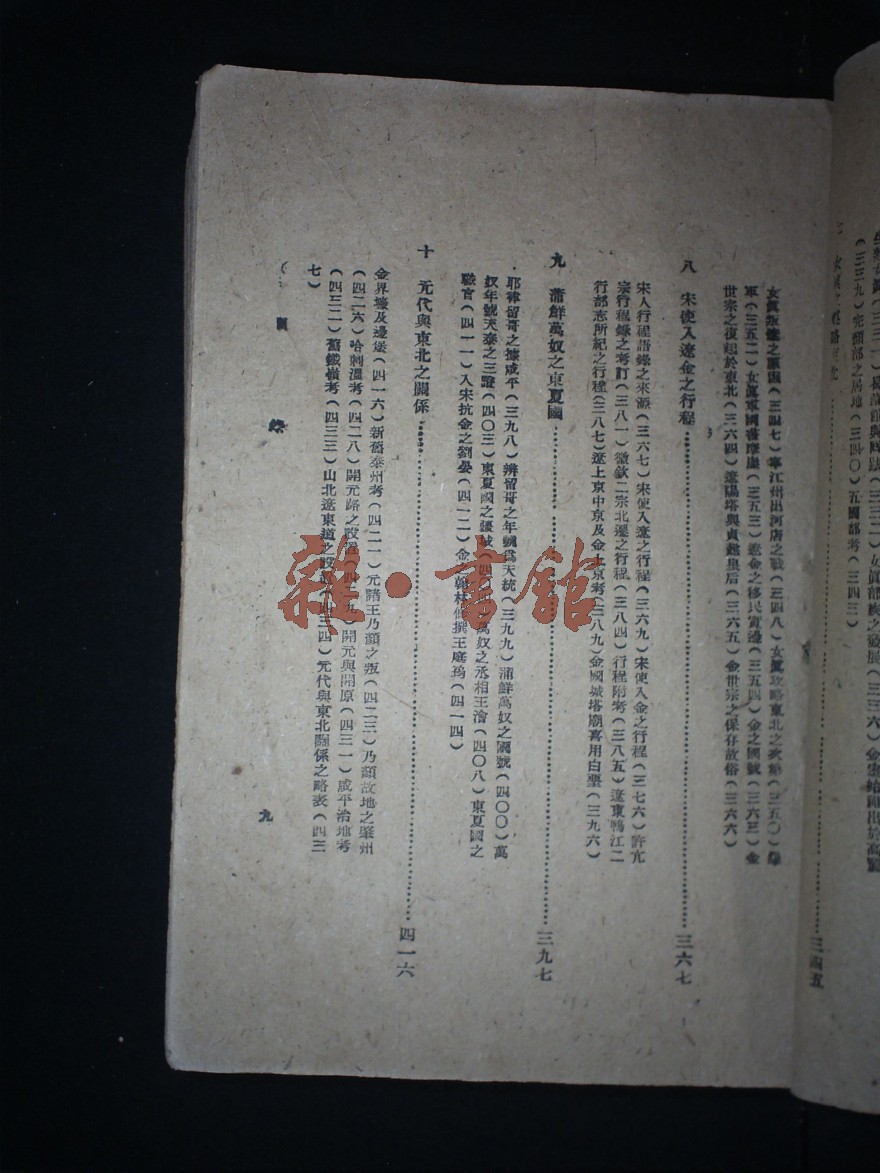 女眞部族之發展(三三六)
(三三九)完顏部之居地(三四〇)五國部考(三四三)
三四五
女眞叛遼之原因(三四七)寧江州出河店之戰(三四八)女眞攻略東北之次第(三五〇)
軍(三五二)女眞軍國書摩崖(三五三)遼金之移民實邊(三五四)金之國號(三六三)金
世宗之復起於東北(三六四)遼陽塔與貞懿皇后(三六五)金世宗之保存故俗(三六六)
八 宋使入遼金之行程 三六七
宋人行程語錄之來源(三六七)宋使入遼之行程(三六九)宋使入金之行程(三七六)許亢
宗行程錄之考訂(三八一)徽欽二宗北遷之行程(三八四)行程附考(三八五)遼東鴨江二
行部志所紀之行程(三八七)遼上京中京及金上京考(三八九)金國城塔廟喜用白堊(三九六)
九 蒲鮮萬奴之東夏國 三九七
耶律留哥之據咸平(三九八)辨留哥之年號爲天統(三九九)蒲鮮萬奴之國號(四〇〇)萬
奴年號天泰之三證(四〇三)東夏國之疆域(四〇 萬奴之丞相王澮(四〇八)東夏國之
職官(四一一)入宋抗金之劉晏(四一二)金之翰林修撰王庭 (四一四)
十 元代與東北之關係 四一六
金界壕及邊堡(四一六)新舊泰州考(四二一)元諸王乃顏之叛(四二三)乃顏故地之肇州
(四二六)哈剌溫考(四二八)開元路之設置(四二九)開元與開原(四三一)咸平治地考
(四三二)舊鐵嶺考(四三三)山北遼東道之設置(四三四)元代與東北關係之略表(四三
七)
目 錄 九
雜·書館